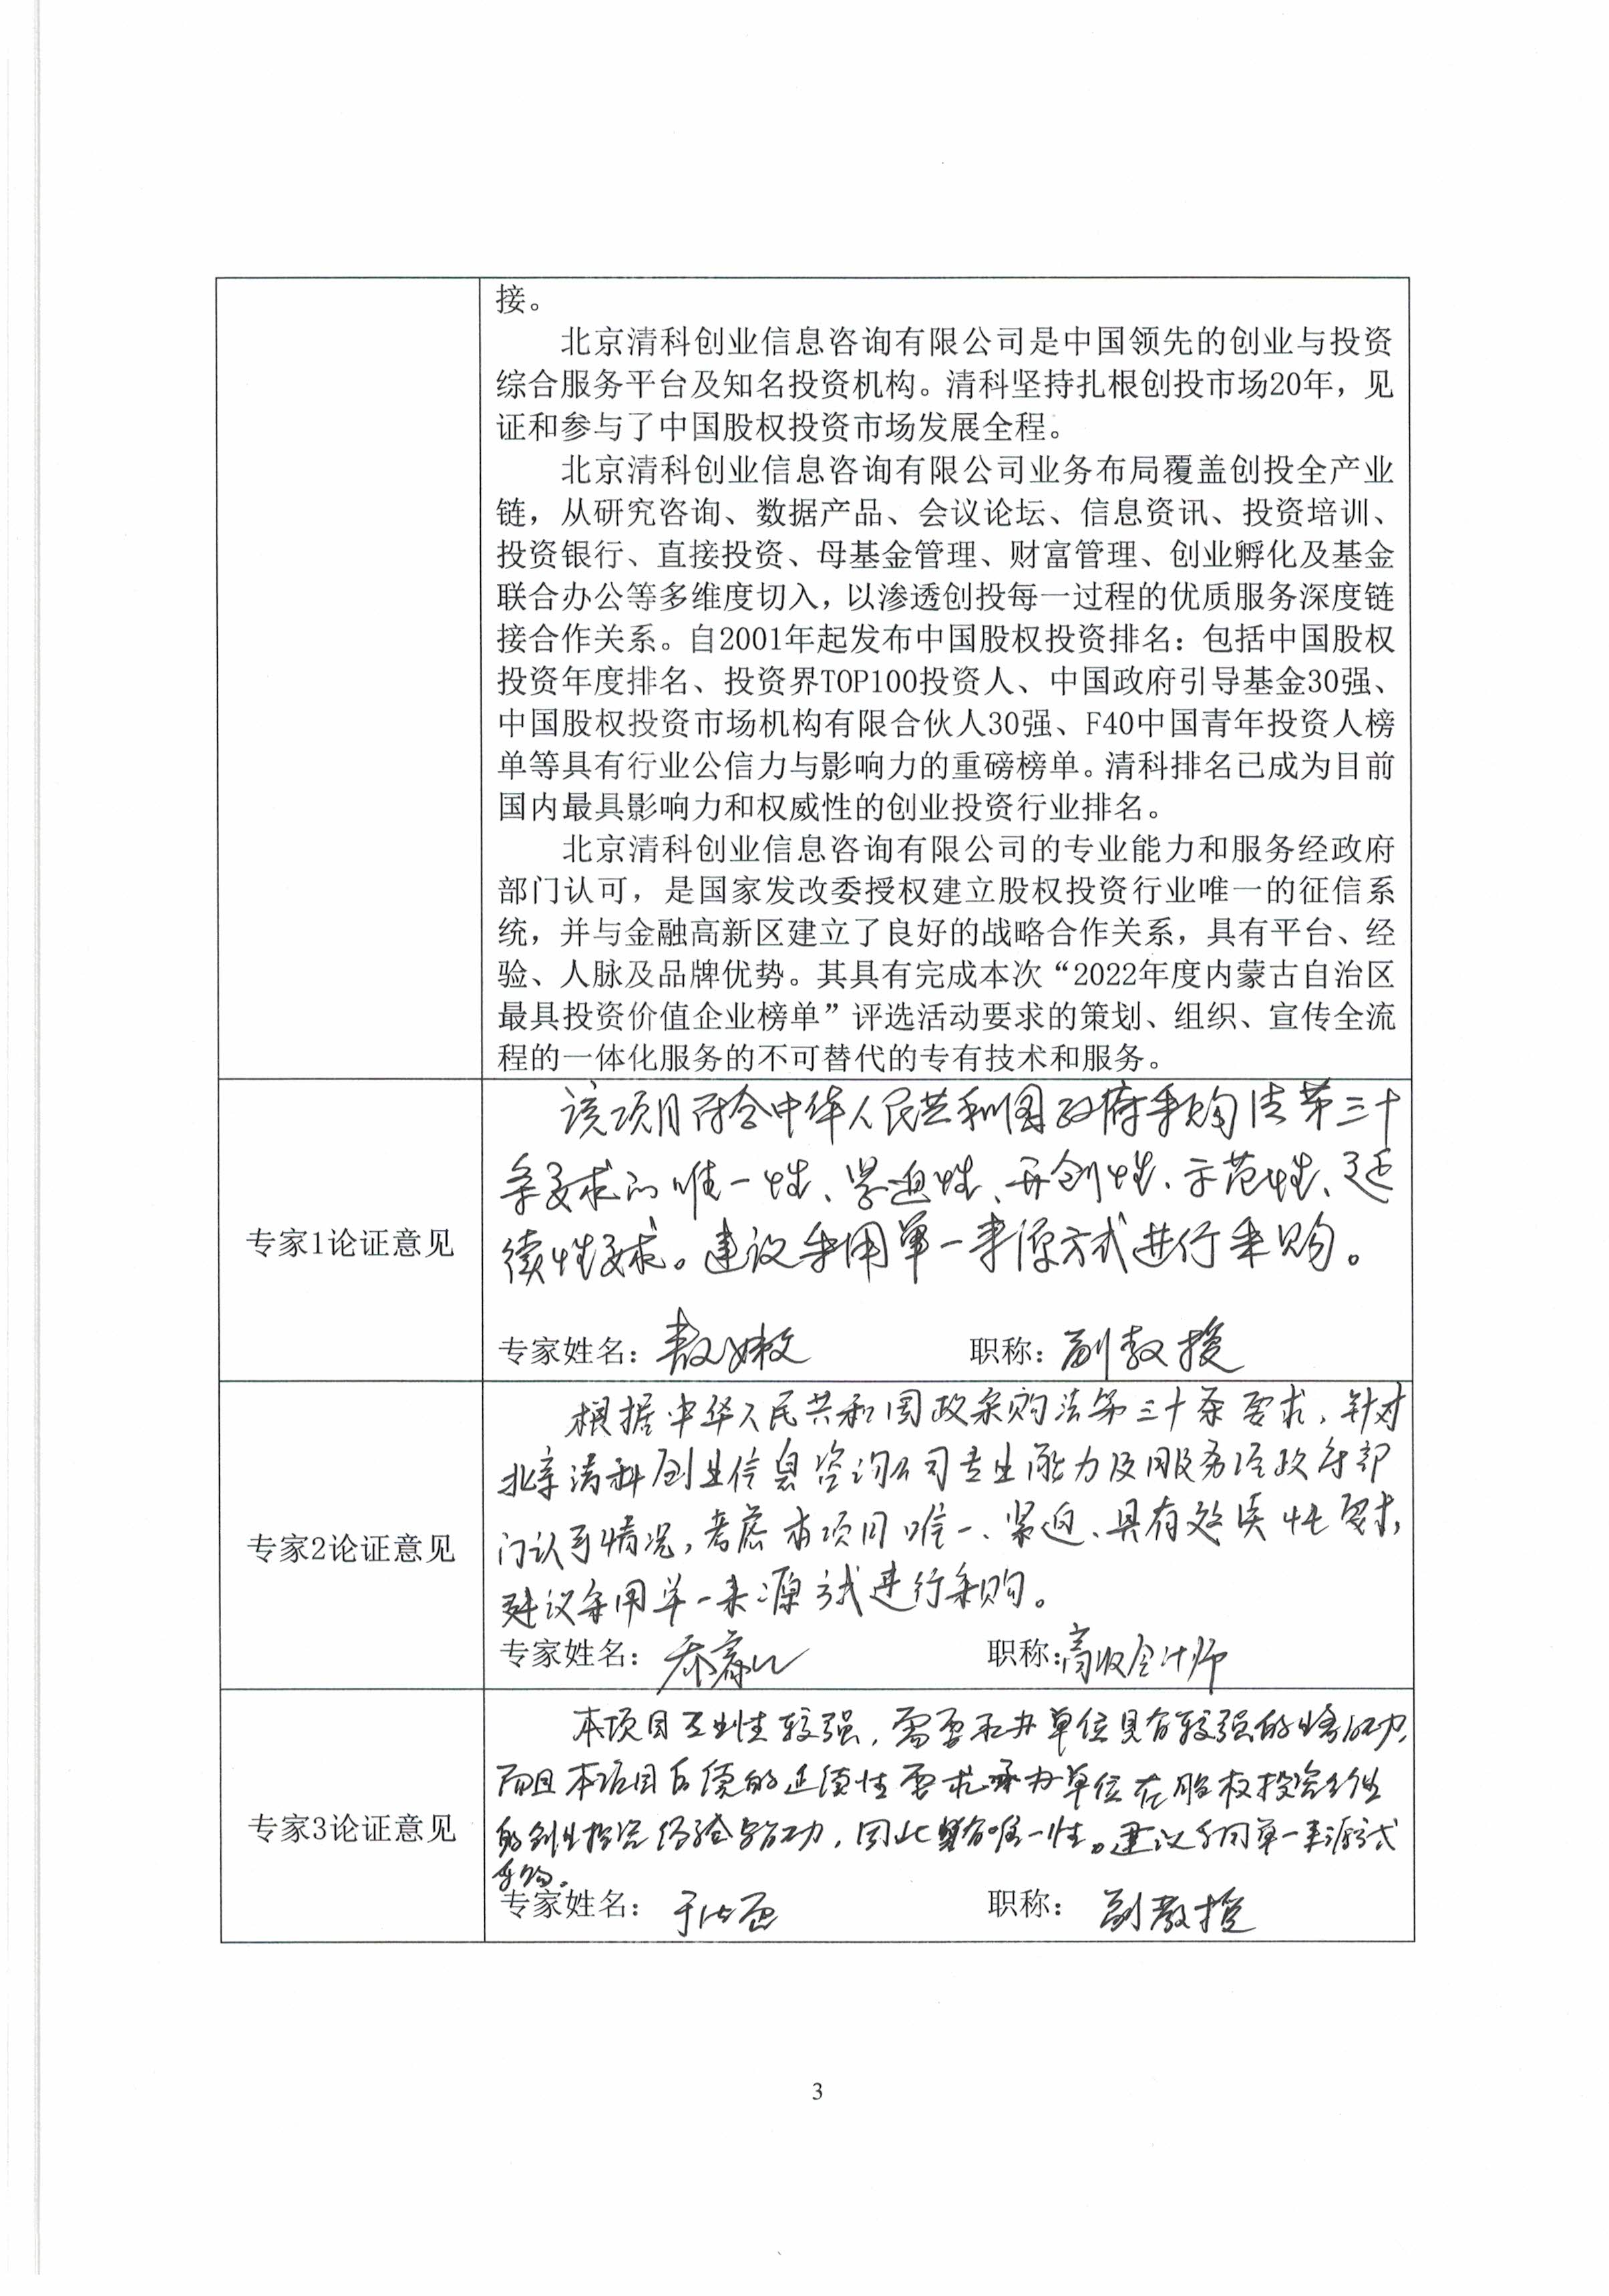 接。
北京清科创业信息咨询有限公司是中国领先的创业与投资
综合服务平台及知名投资机构。清科坚持扎根创投市场20年，见
证和参与了中国股权投资市场发展全程。
北京清科创业信息咨询有限公司业务布局覆盖创投全产业
链，从研究咨询、数据产品、会议论坛、信息资讯、投资培训、
投资银行、直接投资、母基金管理、财富管理、创业孵化及基金
联合办公等多维度切入，以渗透创投每一过程的优质服务深度链
接合作关系。自2001年起发布中国股权投资排名：包括中国股权
投资年度排名、投资界TOP100投资人、中国政府引导基金30强、
中国股权投资市场机构有限合伙人30强、F40中国青年投资人榜
单等具有行业公信力与影响力的重磅榜单。清科排名已成为目前
国内最具影响力和权威性的创业投资行业排名。
北京清科创业信息咨询有限公司的专业能力和服务经政府
部门认可，是国家发改委授权建立股权投资行业唯一的征信系
统，并与金融高新区建立了良好的战略合作关系，具有平台、经
验、人脉及品牌优势。其具有完成本次“2022年度内蒙古自治区
最具投资价值企业榜单”评选活动要求的策划、组织、宣传全流
程的一体化服务的不可替代的专有技术和服务。
专家1论证意见
该项目符合中华人民共和国政府采购法第三十
条要求的唯一性、紧迫性、开创性、示范性、延
续性要求。建议采用单一来源方式进行采购。
专家姓名： 职称：副教授
专家2论证意见
根据中华人民共和国政采购法第三十条要求，针对
北京清科创业信息咨询公司专业能力及服务经政府部
门认可情况，考虑本项目唯一、紧迫、具有延续性要求，
建议采用单一来源方式进行采购。
专家姓名： 职称：高级会计师
专家3论证意见
本项目专业性较强，需要承办单位具有较强的业务能力，
而且本项目后续的延续性要求承办单位在股权投资
的创业投资经验与能力，因此具有唯一性。建议采用单一来源方式
采购。
专家姓名： 职称：副教授
3